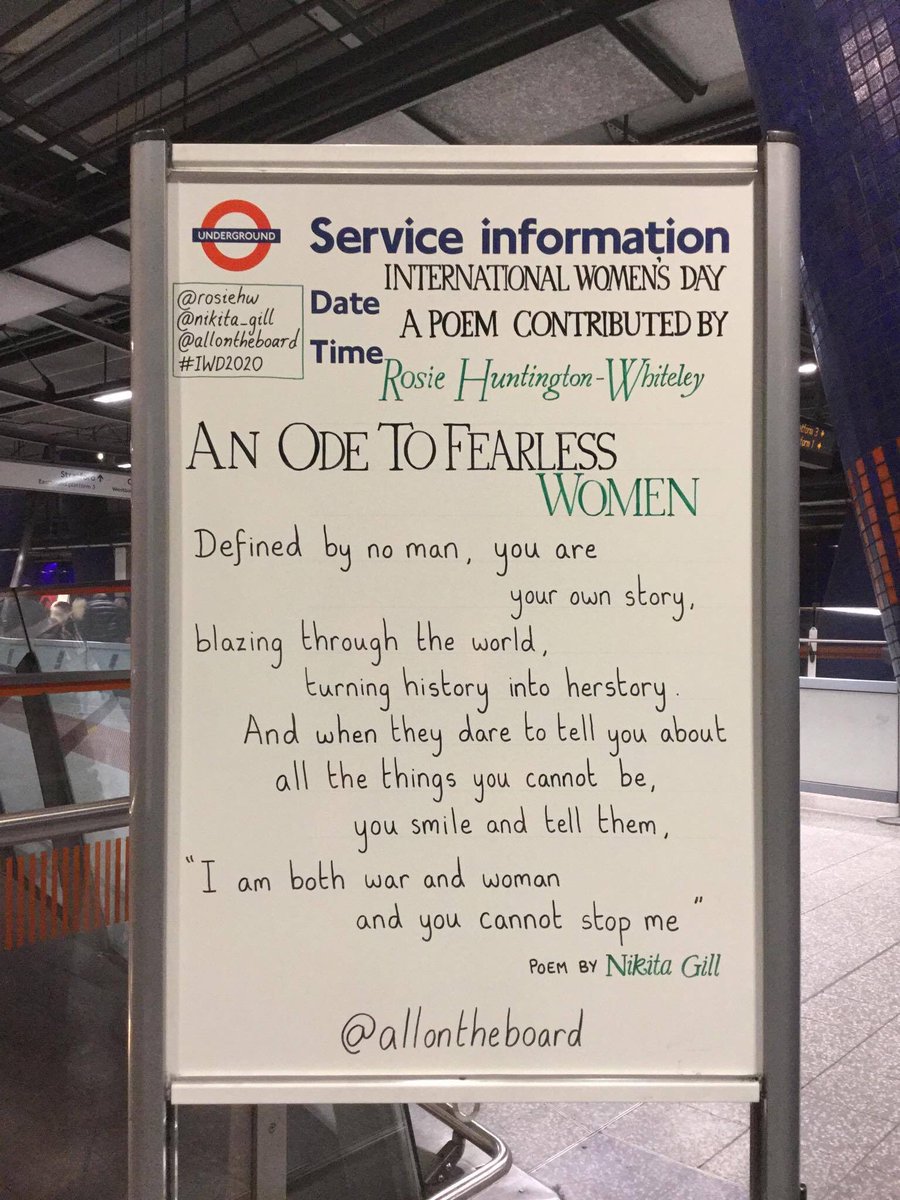 UNDERGROUND
Service information
INTERNATIONAL WOMEN'S DAY
Date
A POEM CONTRIBUTED BY
Time
Rosie Huntington-Whiteley
@rosiehw
@nikita_gill
@allontheboard
#IWD2020
AN ODE TO FEARLESS
WOMEN
Defined by no man, you are
your own story,
blazing through the world,
turning history into herstory.
And when they dare to tell you about
all the things you cannot be,
you smile and tell them,
"I am both war and woman
and you cannot stop me"
POEM BY Nikita Gill
@allontheboard
Stratford ↑